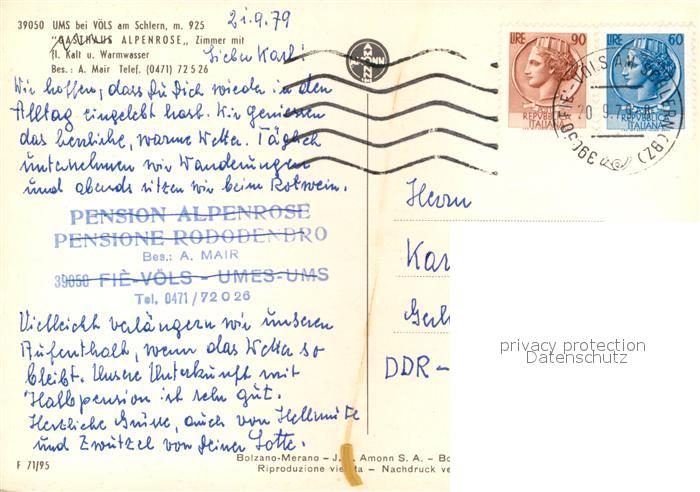 39050 UMS bei VÖLS am Schlern, m. 925
"GASTHAUS ALPENROSE„ Zimmer mit
fl. Kalt u. Warmwasser
Bes.: A. Mair Telef. (0471) 72526
21.9.79
Lieber Karl!
Wir hoffen, dass Du Dich wieder in den
Alltag eingelebt hast. Wir geniessen
das herrliche, warme Wetter. Täglich
unternehmen wir Wanderungen
und abends sitzen wir beim Rotwein.
PENSION ALPENROSE
PENSIONE RODODENDRO
Bes.: A. MAIR
39050 FIÈ-VÖLS - UMES-UMS
Tel. 0471/72026
Vielleicht verlängern wir unseren
Aufenthalt, wenn das Wetter so
bleibt. Unsere Unterkunft mit
Halbpension ist sehr gut.
Herzliche Grüsse, auch von Hellmute
und Zwützel von Deiner Lotte.
F 71/95
AMONN
LIRE 90
REPVBBLICA
ITALIANA
LIRE 60
REPVBBLICA
ITALIANA
39050 FIE-VÖLS A. SCHLERN (BZ)
20.9.79
Herrn
Kar
Ger
DDR-
privacy protection
Datenschutz
Bolzano-Merano - J. F. Amonn S. A. - Bo
Riproduzione vietata - Nachdruck ve